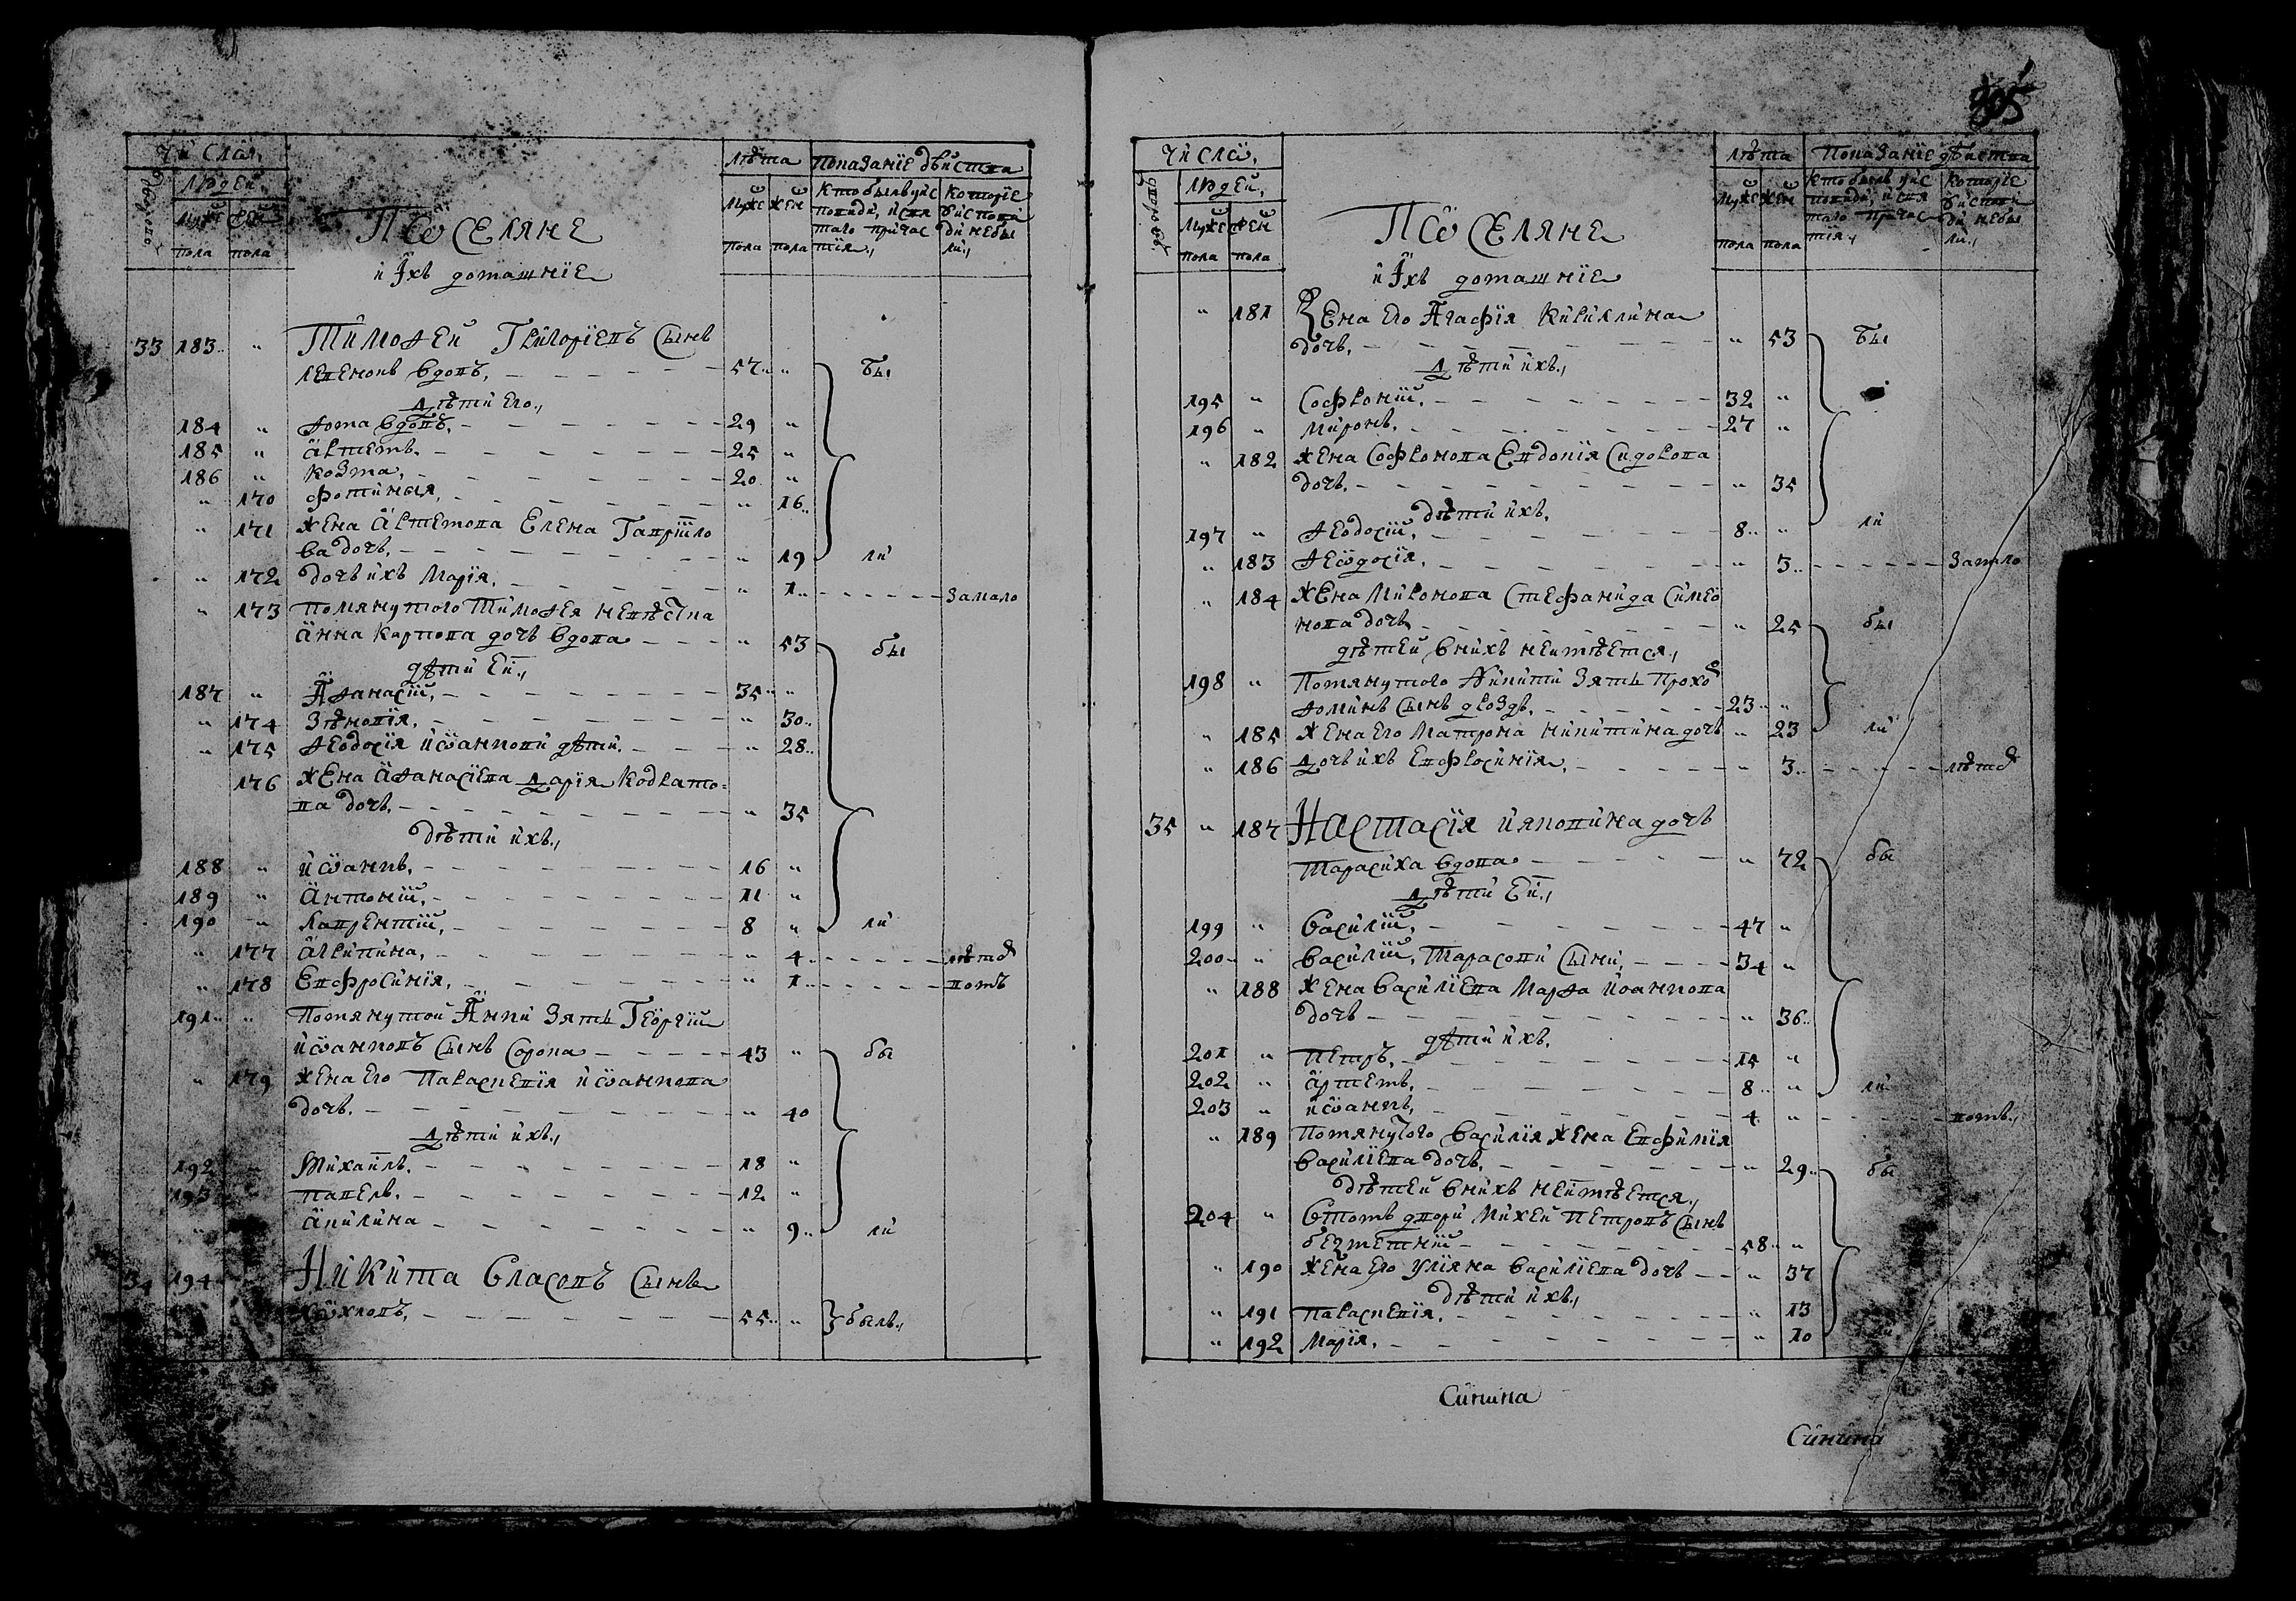 числа,
людей,
дворовъ
муже
пола
жен
пола
Поселяне
и Їхъ домашнїе
лѣта
муже
пола
жен
пола
показанїе дѣиства
кто былъ у ис
поведи, и свя
таго причас
тїя,
которїе
у исповѣ
ди небы
ли,
33 183 " Тимоѳеи Григорїевъ Сынъ
вдовъ, 57 " бы
Дѣти Его,
184 " Ѳома вдовъ, 29 "
185 " Артемъ, 25 "
186 " Козма, 20 "
" 170 Фотинїя, " 16
" 171 жена Артемова Елена Гаврїило
ва дочь, " 19 ли
" 172 дочь ихъ Марїя, " 1 замало
" 173 помянутого Тимоѳея невѣстка
Анна Карпова дочь вдова " 53 бы
дѣти Еи,
187 " Аѳанасїи, 35 "
" 174 Зѣновїя, " 30
" 175 Ѳеодосїя иоаннови дѣти, " 28
176 жена Аѳанасїева Дарїя Кодрато=
ва дочь, " 35
дѣти ихъ,
188 " иоаннъ, 16 "
189 " Антонїи, 11 "
190 " Лаврентїи, 8 " ли
" 177 Агрипина, " 4 лѣтст
" 178 Евфросинїя, " 1 вомъ
191 " Помянутои Анни зять Георгїи
иоанновъ Сынъ Сорока 43 " бы
" 179 жена Его Параскевїя иоаннова
дочь, " 40
Дѣти ихъ,
192 " Михаилъ, 18 "
193 " Павелъ, 12 "
" Акилина " 9 ли
34 194 Никита Власовъ Сынъ
55 " былъ,
305
числа,
людей,
дворовъ
муже
пола
жен
пола
Поселяне
и Їхъ домашнїе
лѣта
муже
пола
жен
пола
показанїе дѣиства
кто былъ у ис
поведи, и свя
таго причас
тїя,
которїе
у исповѣ
ди небы
ли,
" 181 Жена Его Агафїя Кирилина
дочь, " 53 бы
Дѣти ихъ,
195 " Софронїи, 32 "
196 " Миронъ, 27 "
" 182 жена Софронова Евдокїя Сидорова
дочь, " 35
дѣти ихъ,
197 " Ѳеодосїи, 8 " ли
" 183 Ѳеодосїя, " 3 замало
" 184 жена Миронова Стефанида Симео
нова дочь, " 25 бы
дѣтей вних неимѣется,
198 " Помянутого Никити зять Прохо
Ѳоминъ Сынъ дроздъ, 23 "
" 185 жена Его Матрона никитина дочь " 23 ли
" 186 Дочь ихъ Евфросинїя, " 3 лѣтст
35 " 187 Настасїя ияковина дочь
Тарасиха вдова " 72 бы
Дѣти Еи,
199 " Василїи, 47 "
200 " Василїи, Тарасови Сыни, 34 "
" 188 жена Василїева Марѳа иоаннова
дочь " 36
дѣти ихъ,
201 " Петръ, 15 "
202 " Артемъ, 8 " ли
203 " иоаннъ, 4 " вомъ,
" 189 Помянутого Василїя жена Евфимїя
Василїева дочь, " 29 бы
дѣтей внихъ неимѣется,
204 " Втомъ дворѣ Михеи Петровъ Сынъ
58 "
" 190 жена Его Улїяна Василїева дочь " 37
дѣти ихъ,
" 191 Параскевїя, " 13
" 192 Марїя, " 10 ли